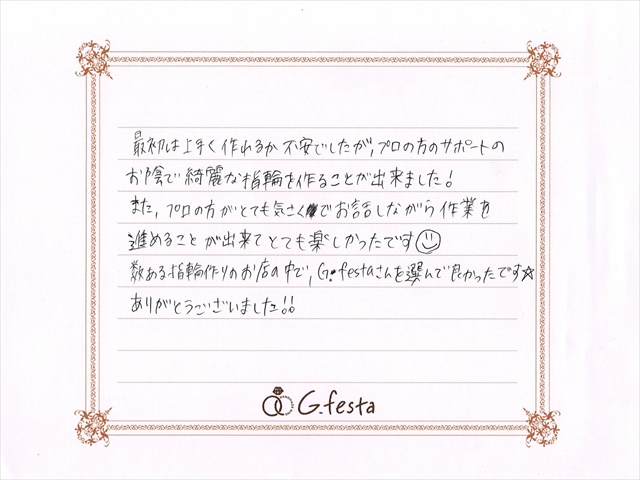 最初は上手く作れるか不安でしたが、プロの方のサポートの
お陰で綺麗な指輪を作ることが出来ました!
また、プロの方がとても気さくでお話しながら作業を
進めることが出来てとても楽しかったです☺
数ある指輪作りのお店の中で、G.festaさんを選んで良かったです☆
ありがとうございました!!
G.festa